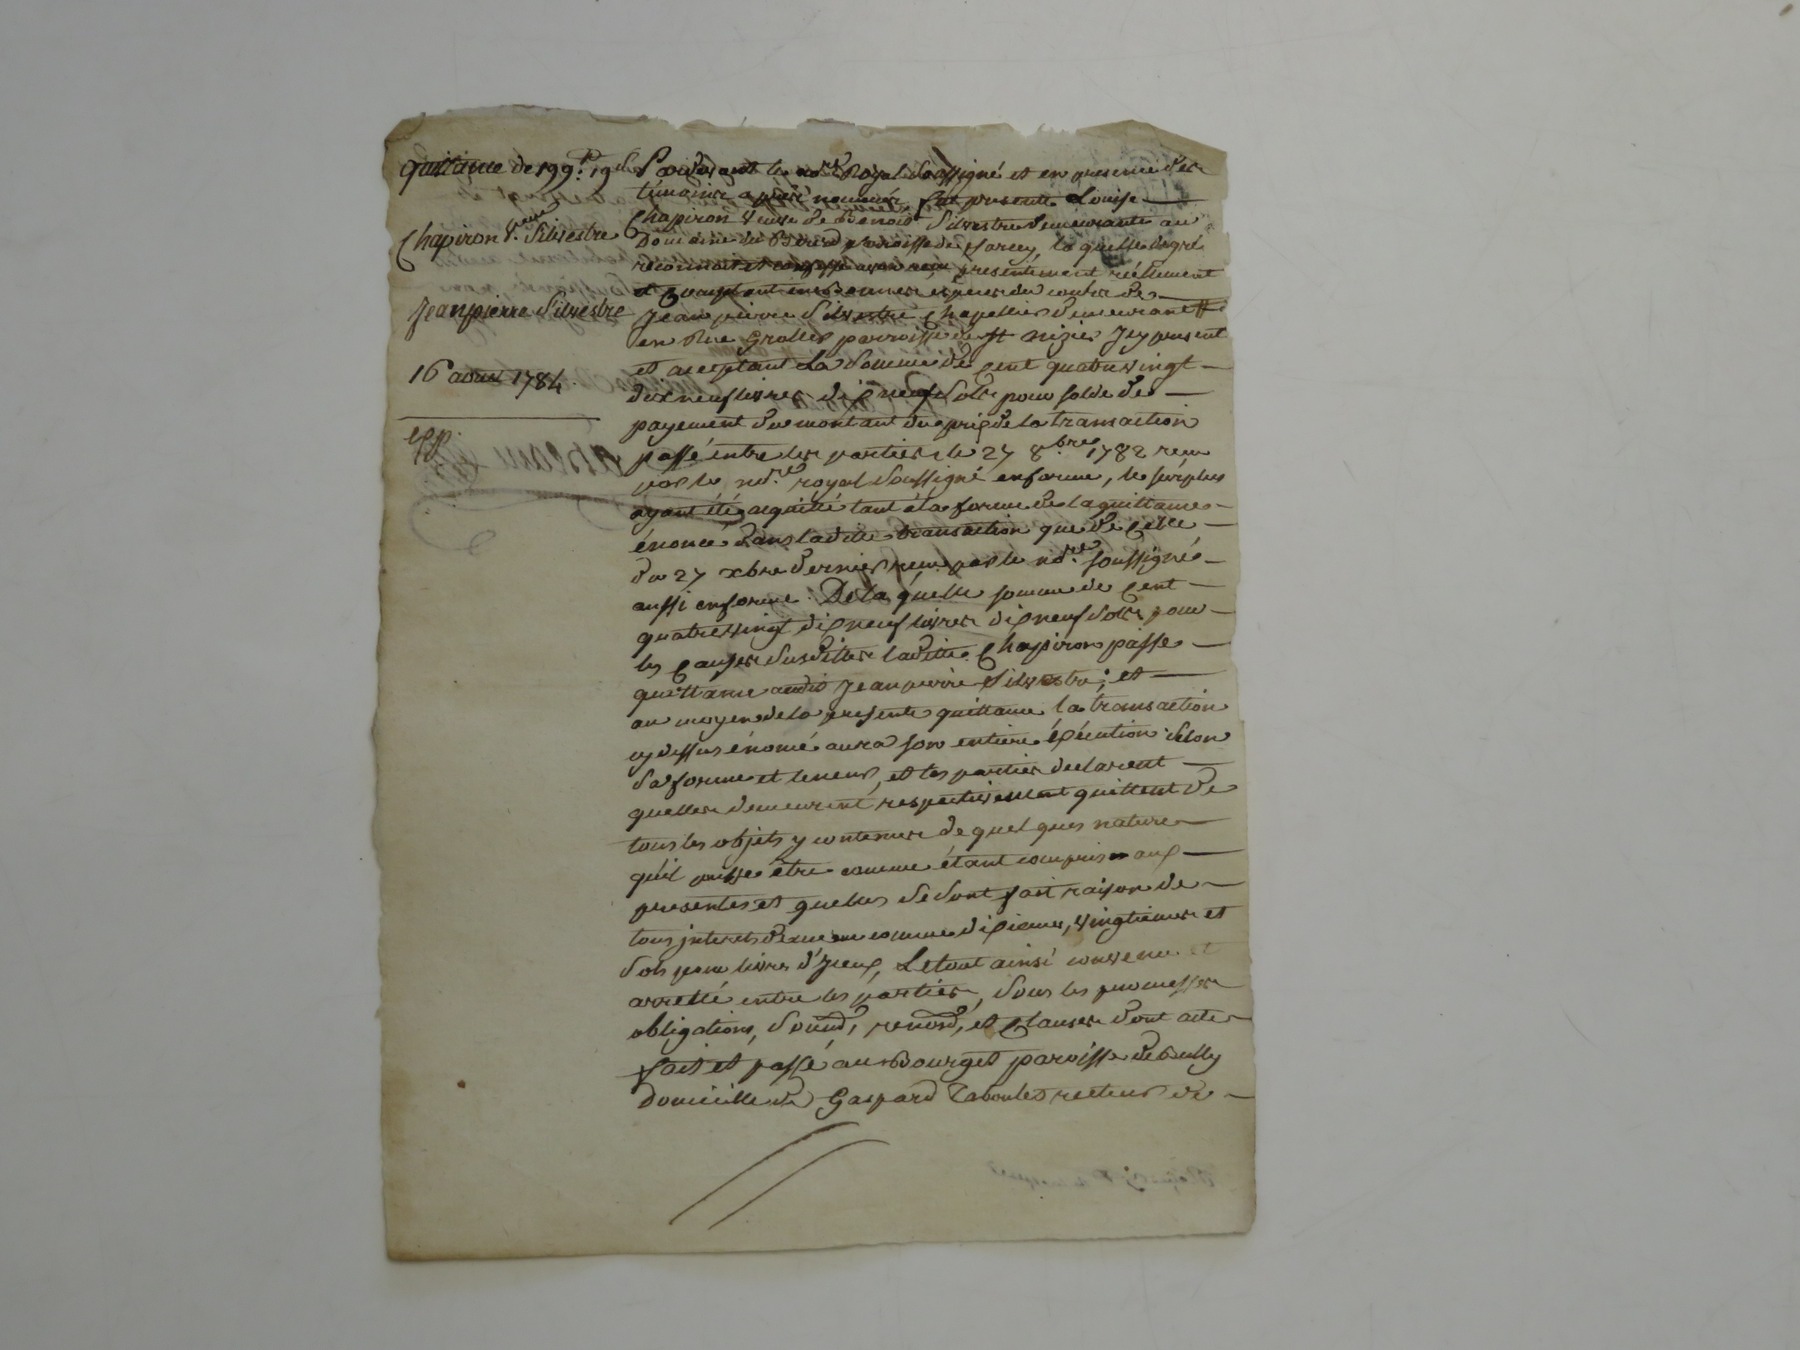 Quittance de 199.# 19 s.
Chapiron V.euve Silvestre
Jeanpierre Silvestre
16 avril 1784.
exp.
Pardevant le no.re Royal soussigné et en presence des
témoins apres nommés, fut presente Louise
Chapiron veuve de Benoit Silvestre demeurante au
Domaine du paroisse de Sarcey, laquelle degré
reconnoit et confesse avoir reçu presentement réellement
et comptant en bonnes espèces du cours de
Jean pierre Silvestre Chapellier demeurant
en Rue Grolée parroisse de St nizier Icy present
et acceptant La Somme de cent quatrevingt
dix neuf livres dixneuf Sols pour solde de
payement du montant du prix de la transaction
passé entre les parties le 27 8.bre 1782 reçu
par le no.re royal soussigné en forme, le surplus
ayant été acquitté tant à la forme de la quittance
énoncé dans ladite transaction que de celle
du 27 xbre dernier reçue par le no.re soussigné
aussi en forme. De laquelle somme de cent
quatrevingt dixneuf livres dixneuf sols pour
les causes susdittes laditte Chapiron passe
quittance audit Jeanpierre Silvestre; et
au moyen de la presente quittance la transaction
cy dessus énoncé aura son entiere éxécution selon
sa forme et teneur, et les parties declarent
quelles demeurent respectivement quittent de
tous les objets y contenus de quelques nature
qu'il puisse être comme étant compris aux
presentes et quelles se sont fait raison de
tous interets comme dixiemes, vingtiemes et
sols pour livres d'Iceux, Letout ainsi convenu et
arretté entre les parties, sous les promesses
obligations, soumd, renond, et clauses dont acte
fait et passé au Bourget paroisse de Bully
Domicille de Gaspard Taboulet recteur de